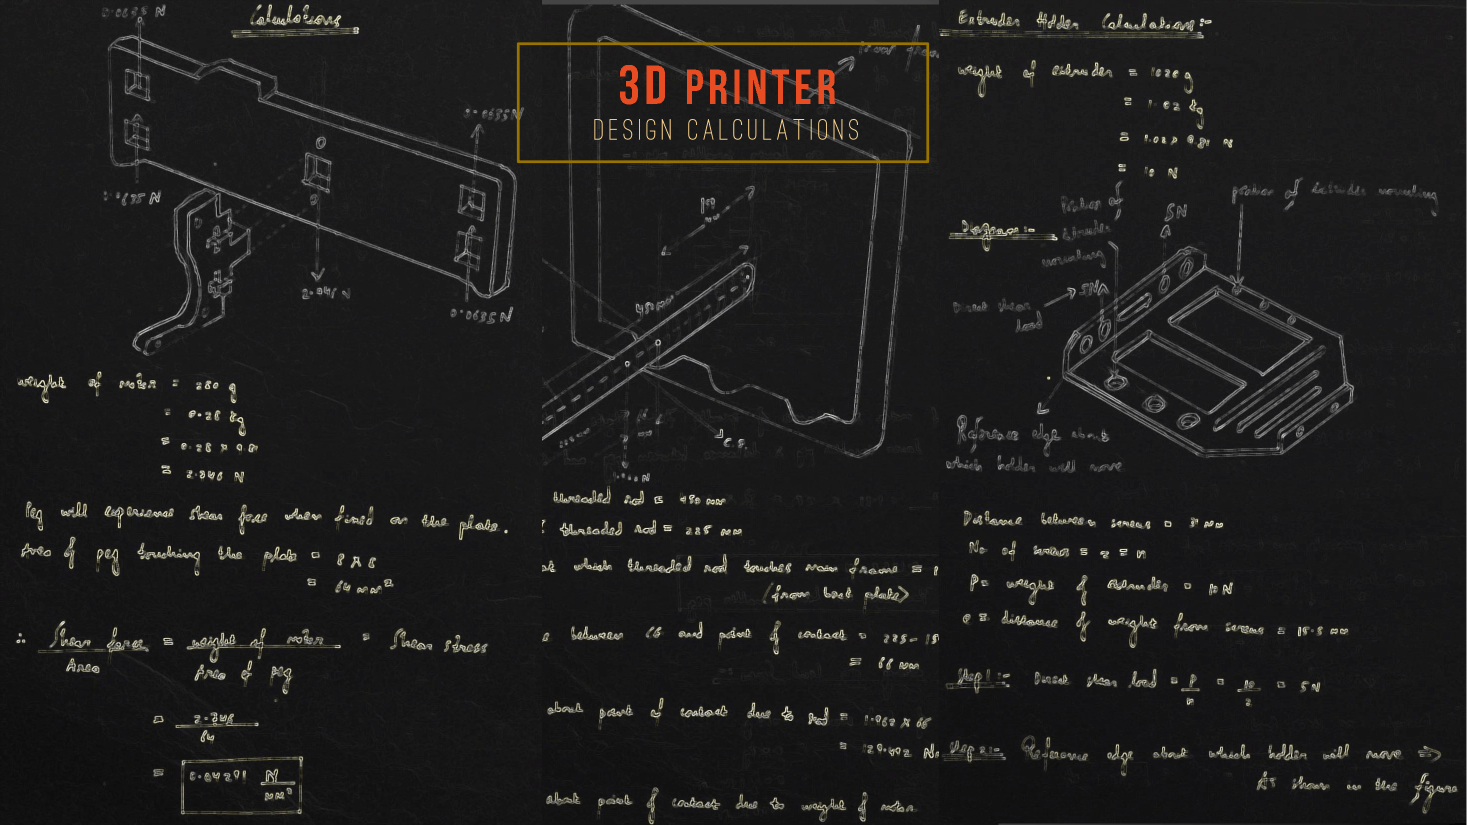 Calculations
0.0635 N
0.0635 N
2.746 N
0.0635 N
weight of motor = 280 g
= 0.28 kg
= 2.746 N
Peg will experience shear force when fixed on the plate.
Area of peg touching the plate = 8 x 8
= 64 mm²
∴ Shear force = weight of motor = Shear stress
Area Area of Peg
= 2.746
64
= 0.04291 N
mm²
3D PRINTER
DESIGN CALCULATIONS
450 mm
C.G.
threaded rod = 450 mm
threaded rod = 225 mm
at which threaded rod touches main frame =
(from back plate)
between CG and point of contact = 225 - 15
= 66 mm
about point of contact due to rod = 1.962 x 66
= 129.492 N
about point of contact due to weight of motor
Extruder Holder Calculations :-
weight of extruder = 1020 g
= 1.02 kg
= 1.02 x 9.81 N
= 10 N
Diagram :-
Portion of
extruder
mounting
5N
portion of extruder mounting
Direct shear
load
5N
Reference edge about
which holder will move
Distance between screws = mm
No of screws = 2 = n
P = weight of extruder = 10 N
e = distance of weight from screws = 19.5 mm
Step 1 :- Direct shear load = P = 10 = 5 N
n 2
Step 2 :- Reference edge about which holder will move ⇒
As shown in the figure